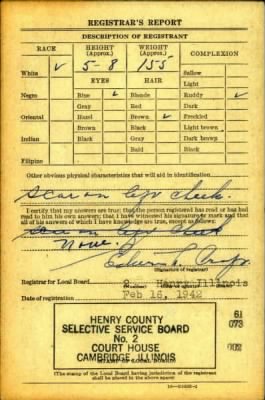 REGISTRAR'S REPORT
DESCRIPTION OF REGISTRANT
RACE HEIGHT (Approx.) WEIGHT (Approx.) COMPLEXION
White ✓ 5-8 155 Sallow
EYES HAIR Light
Negro Blue ✓ Blonde Ruddy ✓
Gray Red Dark
Oriental Hazel Brown ✓ Freckled
Brown Black Light brown
Indian Black Gray Dark brown
Bald Black
Filipino
Other obvious physical characteristics that will aid in identification
Scar on left cheek.
I certify that my answers are true; that the person registered has read or has had
read to him his own answers; that I have witnessed his signature or mark and that
all of his answers of which I have knowledge are true, except as follows:
Scar on left cheek
None.
(Signature of registrar)
Registrar for Local Board 2 Henry Illinois
Date of registration Feb 16, 1942
HENRY COUNTY
SELECTIVE SERVICE BOARD
No. 2
COURT HOUSE
CAMBRIDGE, ILLINOIS
61
073
002
(STAMP OF LOCAL BOARD)
(The stamp of the Local Board having jurisdiction of the registrant
shall be placed in the above space.)